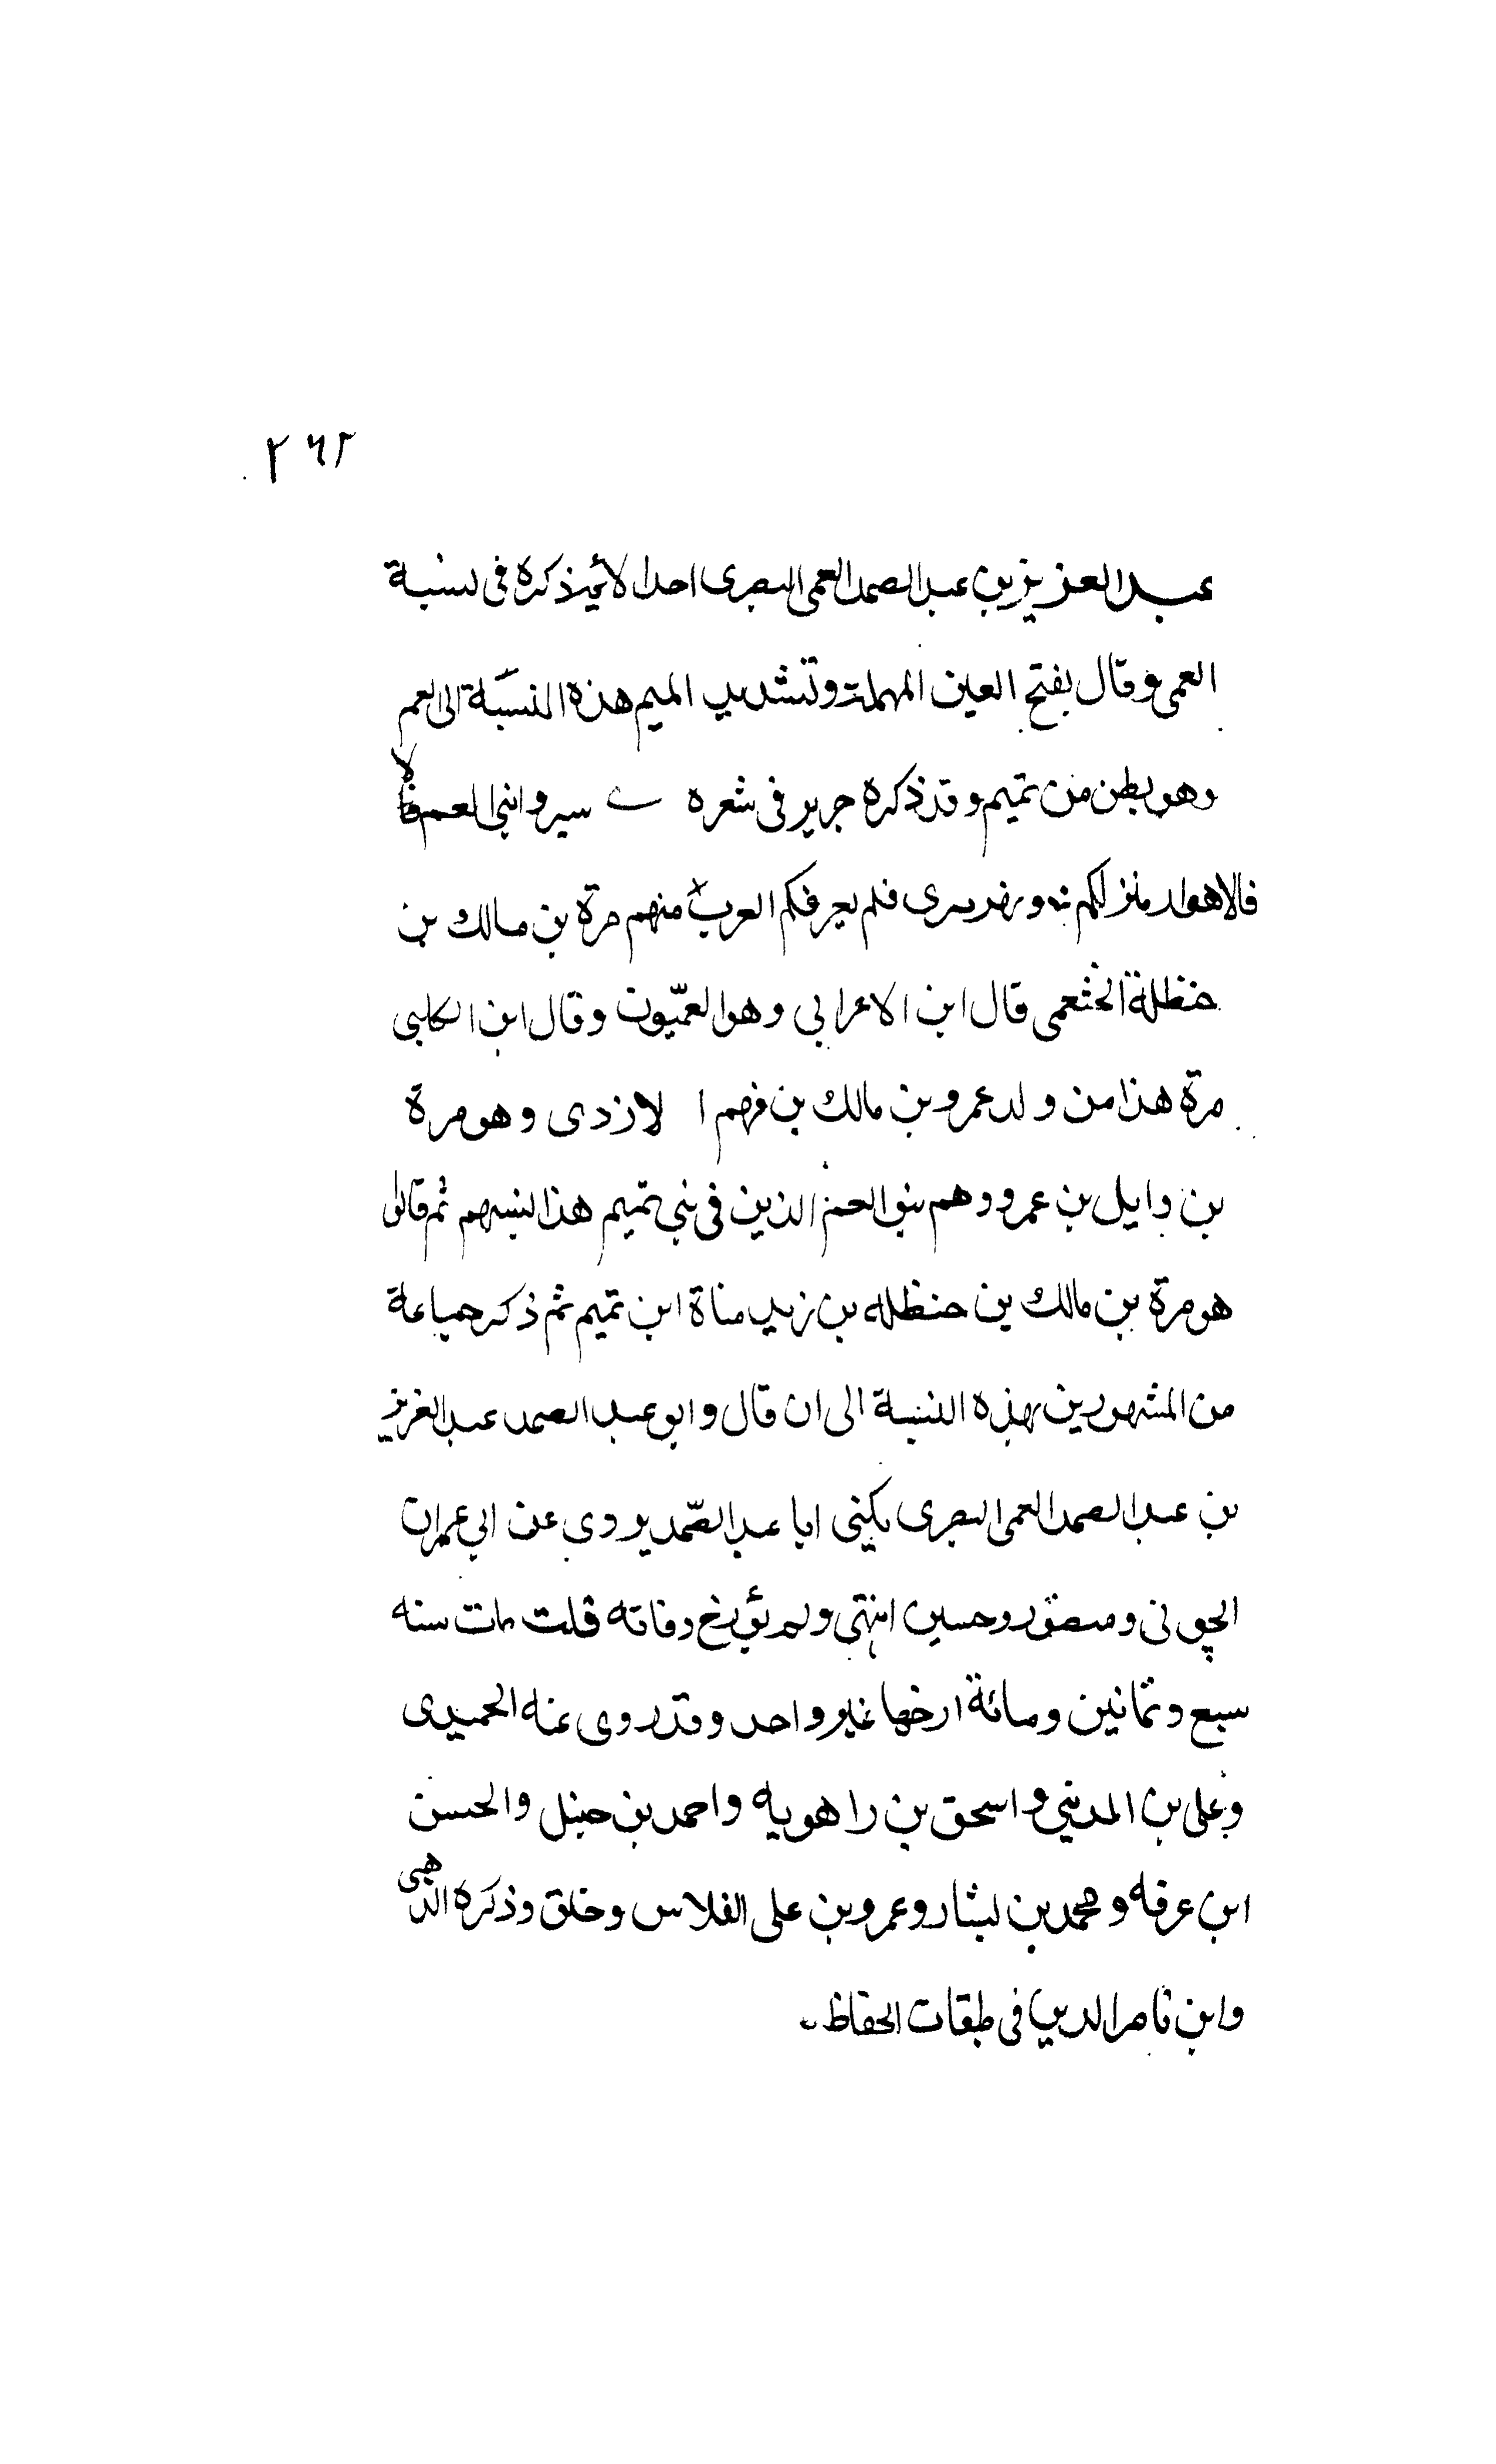 ٢٦٢
عبد العزيز بن عبد الصمد العمى البصرى احد الأئمة ذكره فى نسبة
العمى وقال بفتح العين المهملة وتشديد الميم هذه النسبة الى العم
وهو بطن من تميم وقد ذكره جرير فى شعره سيروا بنى العم
فالاهواز منزلكم ونهر تيرى فلم يعرفكم العرب منهم مرة بن مالك بن
حنظلة الخثعمى قال ابن الاعرابي وهو العمّيون وقال ابن الكلبى
مرة هذا من ولد عمرو بن مالك بن فهم الازدى وهو مرة
بن وايل بن عمرو وهم بنو العم الذين فى بني تميم هذا نسبهم ثم قالوا
هو مرة بن مالك بن حنظله بن زيد مناة ابن تميم ثم ذكر جماعة
من المشهورين بهذه النسبة الى ان قال وابو عبد الصمد عبد العزيز
بن عبد الصمد العمى البصرى يكنى ابا عبد الصّمد يروى عن ابي عمران
الجونى ومنصور وحسين انتهى ولم يؤرخ وفاته قلت مات سنه
سبع وثمانين ومائة ارخها غير واحد وقد روى عنه الحميدى
وعلى بن المديني واسحق بن راهويه واحمد بن حنبل والحسن
ابن عرفه ومحمد بن بشار وعمرو بن على الفلاس وخلق وذكره الذهبى
وابن ناصر الدين فى طبقات الحفاظ